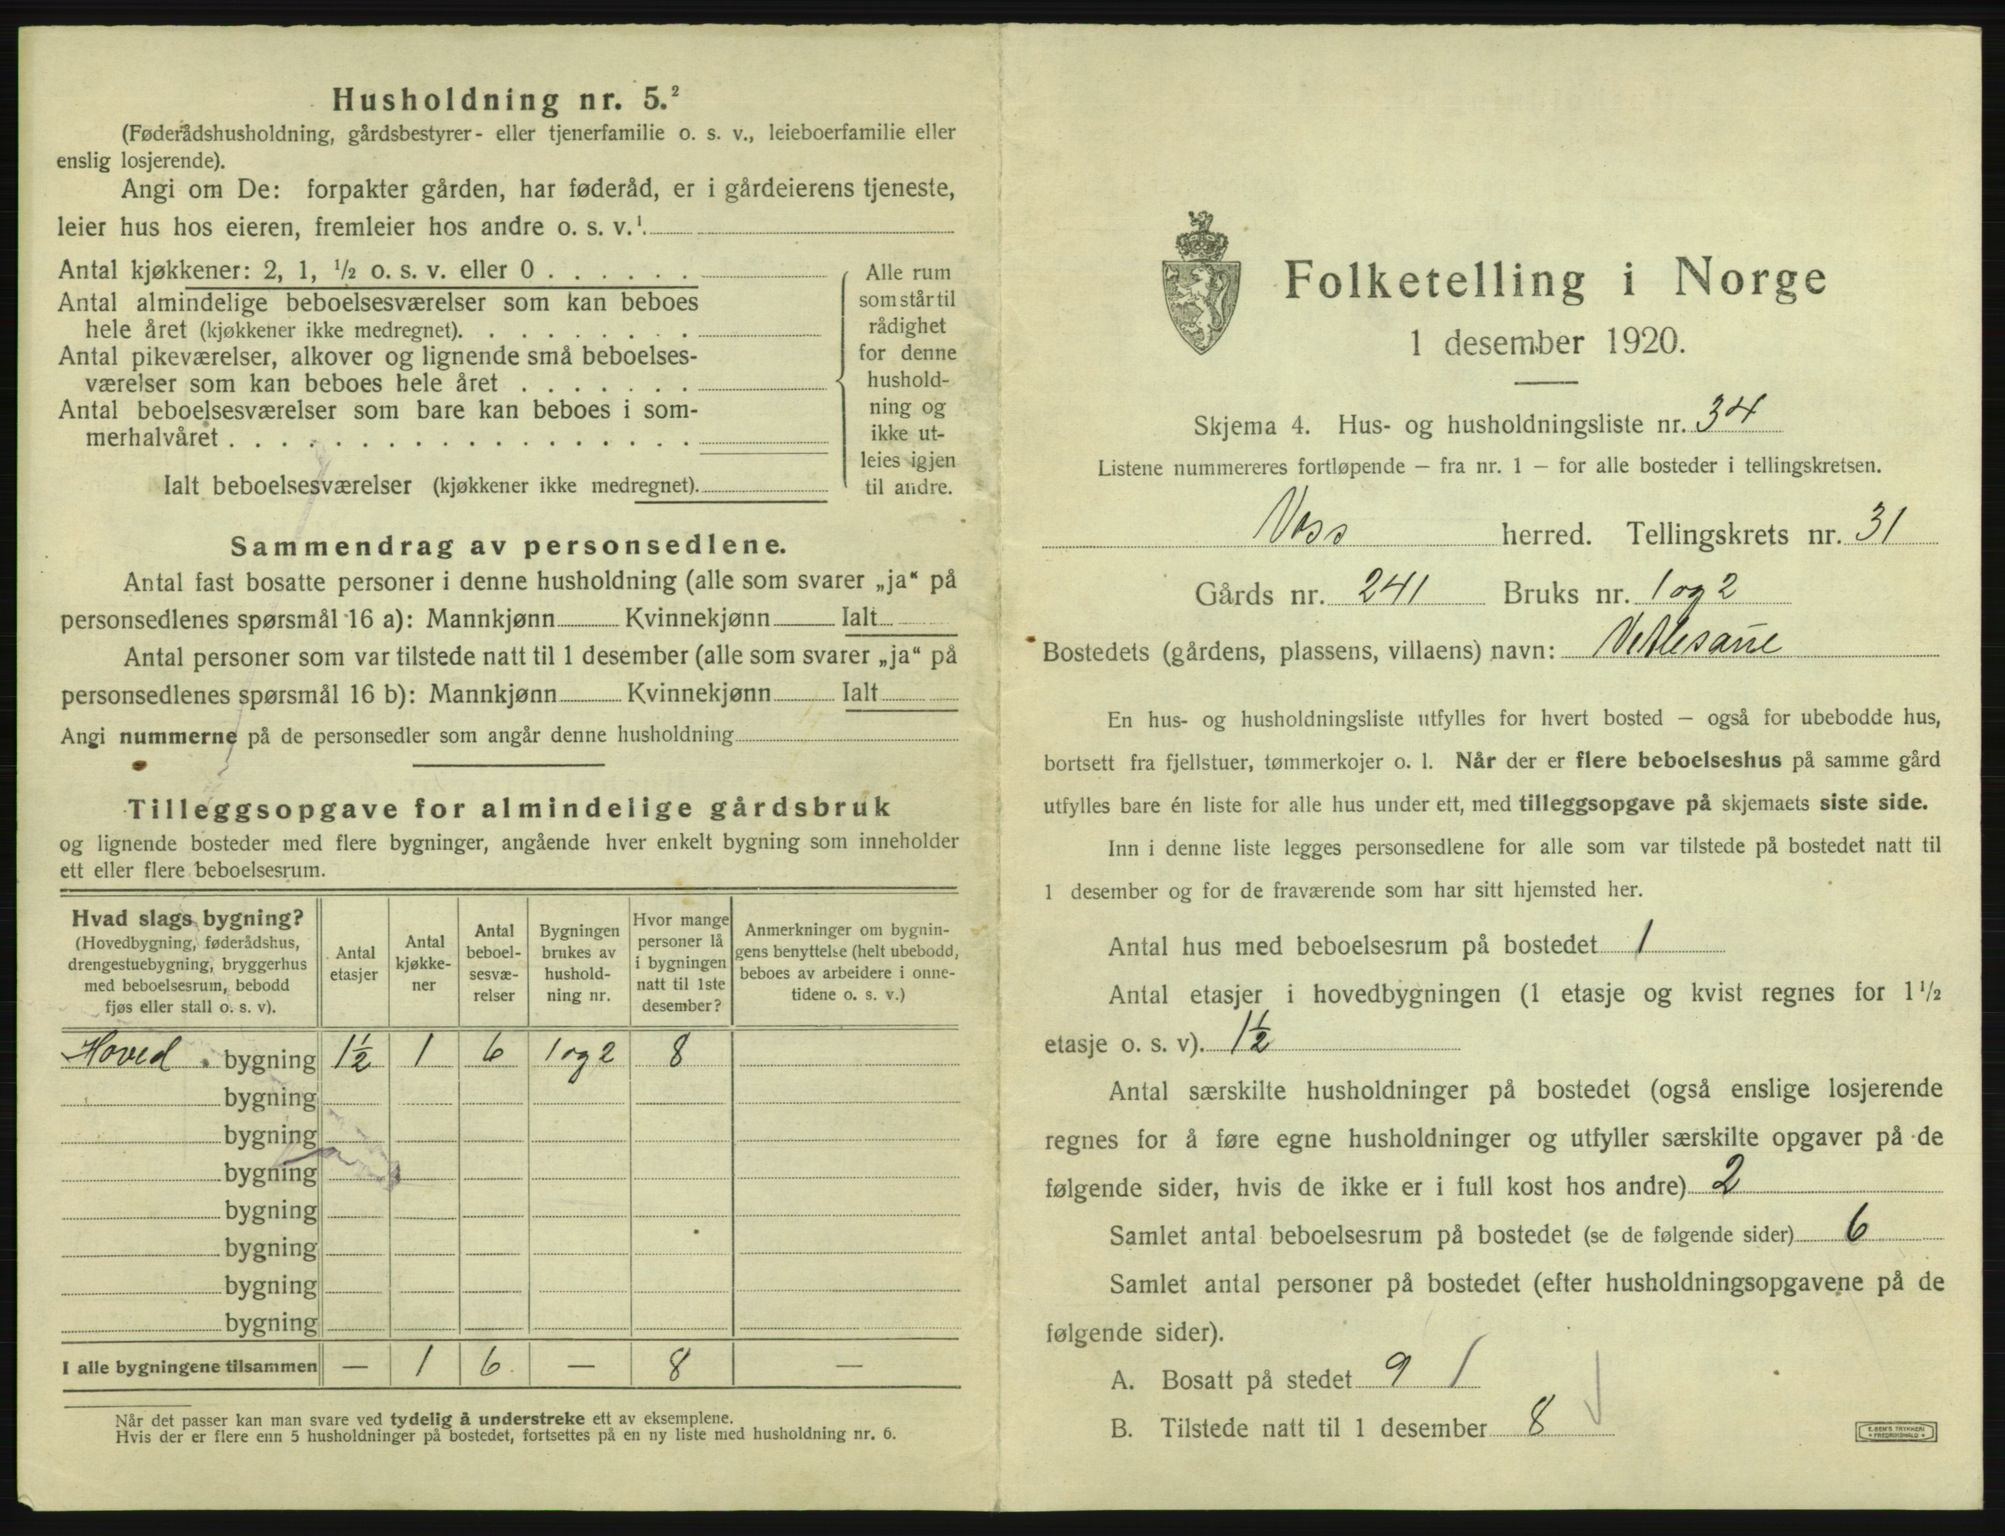 Husholdning nr. 5.²
(Føderådshusholdning, gårdsbestyrer- eller tjenerfamilie o. s. v., leieboerfamilie eller
enslig losjerende).
Angi om De: forpakter gården, har føderåd, er i gårdeierens tjeneste,
leier hus hos eieren, fremleier hos andre o. s. v.¹.
Antal kjøkkener: 2, 1, ½ o. s. v. eller 0 . . . . . .
Antal almindelige beboelsesværelser som kan beboes
hele året (kjøkkener ikke medregnet). . . . . . . . .
Antal pikeværelser, alkover og lignende små beboelses-
værelser som kan beboes hele året . . . . . . .
Antal beboelsesværelser som bare kan beboes i som-
merhalvåret . . . . . . . . . . . . . . . . . .
Ialt beboelsesværelser (kjøkkener ikke medregnet).
Alle rum
som står til
rådighet
for denne
hushold-
ning og
ikke ut-
leies igjen
til andre.
Sammendrag av personsedlene.
Antal fast bosatte personer i denne husholdning (alle som svarer „ja“ på
personsedlenes spørsmål 16 a): Mannkjønn Kvinnekjønn Ialt
Antal personer som var tilstede natt til 1 desember (alle som svarer „ja“ på
personsedlenes spørsmål 16 b): Mannkjønn Kvinnekjønn Ialt
Angi nummerne på de personsedler som angår denne husholdning
Tilleggsopgave for almindelige gårdsbruk
og lignende bosteder med flere bygninger, angående hver enkelt bygning som inneholder
ett eller flere beboelsesrum.
Hvad slags bygning?
(Hovedbygning, føderådshus,
drengestuebygning, bryggerhus
med beboelsesrum, bebodd
fjøs eller stall o. s. v).
Antal
etasjer
Antal
kjøkke-
ner
Antal
beboel-
sesvæ-
relser
Bygningen
brukes av
hushold-
ning nr.
Hvor mange
personer lå
i bygningen
natt til 1ste
desember?
Anmerkninger om bygnin-
gens benyttelse (helt ubebodd,
beboes av arbeidere i onne-
tidene o. s. v.)
Hoved bygning 1½ 1 6 1 og 2 8
bygning
bygning
bygning
bygning
bygning
bygning
bygning
I alle bygningene tilsammen — 1 6 — 8 —
Når det passer kan man svare ved tydelig å understreke ett av eksemplene.
Hvis der er flere enn 5 husholdninger på bostedet, fortsettes på en ny liste med husholdning nr. 6.
Folketelling i Norge
1 desember 1920.
Skjema 4. Hus- og husholdningsliste nr. 34
Listene nummereres fortløpende – fra nr. 1 – for alle bosteder i tellingskretsen.
Voss herred. Tellingskrets nr. 31
Gårds nr. 241 Bruks nr. 1 og 2
Bostedets (gårdens, plassens, villaens) navn:
En hus- og husholdningsliste utfylles for hvert bosted – også for ubebodde hus,
bortsett fra fjellstuer, tømmerkojer o. l. Når der er flere beboelseshus på samme gård
utfylles bare én liste for alle hus under ett, med tilleggsopgave på skjemaets siste side.
Inn i denne liste legges personsedlene for alle som var tilstede på bostedet natt til
1 desember og for de fraværende som har sitt hjemsted her.
Antal hus med beboelsesrum på bostedet 1
Antal etasjer i hovedbygningen (1 etasje og kvist regnes for 1½
etasje o. s. v). 1½
Antal særskilte husholdninger på bostedet (også enslige losjerende
regnes for å føre egne husholdninger og utfyller særskilte opgaver på de
følgende sider, hvis de ikke er i full kost hos andre) 2
Samlet antal beboelsesrum på bostedet (se de følgende sider) 6
Samlet antal personer på bostedet (efter husholdningsopgavene på de
følgende sider).
A. Bosatt på stedet 9
B. Tilstede natt til 1 desember 8